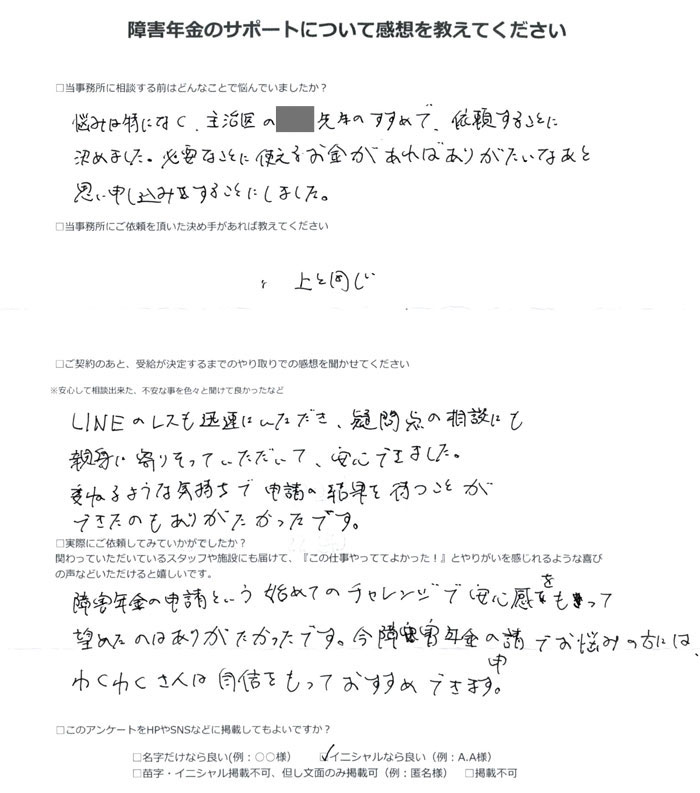 障害年金のサポートについて感想を教えてください
□当事務所に相談する前はどんなことで悩んでいましたか？
悩みは特になく、主治医の 先生のすすめで、依頼することに
決めました。必要なことに使えるお金があればありがたいなあと
思い申し込みをすることにしました。
□当事務所にご依頼を頂いた決め手があれば教えてください
上と同じ
□ご契約のあと、受給が決定するまでのやり取りでの感想を聞かせてください
※安心して相談出来た、不安な事を色々と聞けて良かったなど
LINEのレスも迅速にいただき、疑問点の相談にも
親身に寄りそっていただいて、安心できました。
委ねるような気持ちで申請の結果を待つことが
できたのもありがたかったです。
□実際にご依頼してみていかがでしたか？
関わっていただいているスタッフや施設にも届けて、『この仕事やっててよかった！』とやりがいを感じれるような喜び
の声などいただけると嬉しいです。
障害年金の申請という始めてのチャレンジで安心感をもって
望めたのはありがたかったです。今障害年金の申請でお悩みの方には、
わくわくさんは自信をもっておすすめできます。
□このアンケートをHPやSNSなどに掲載してもよいですか？
□名字だけなら良い(例：〇〇様) ☑イニシャルなら良い（例：A.A様）
□苗字・イニシャル掲載不可、但し文面のみ掲載可（例：匿名様） □掲載不可